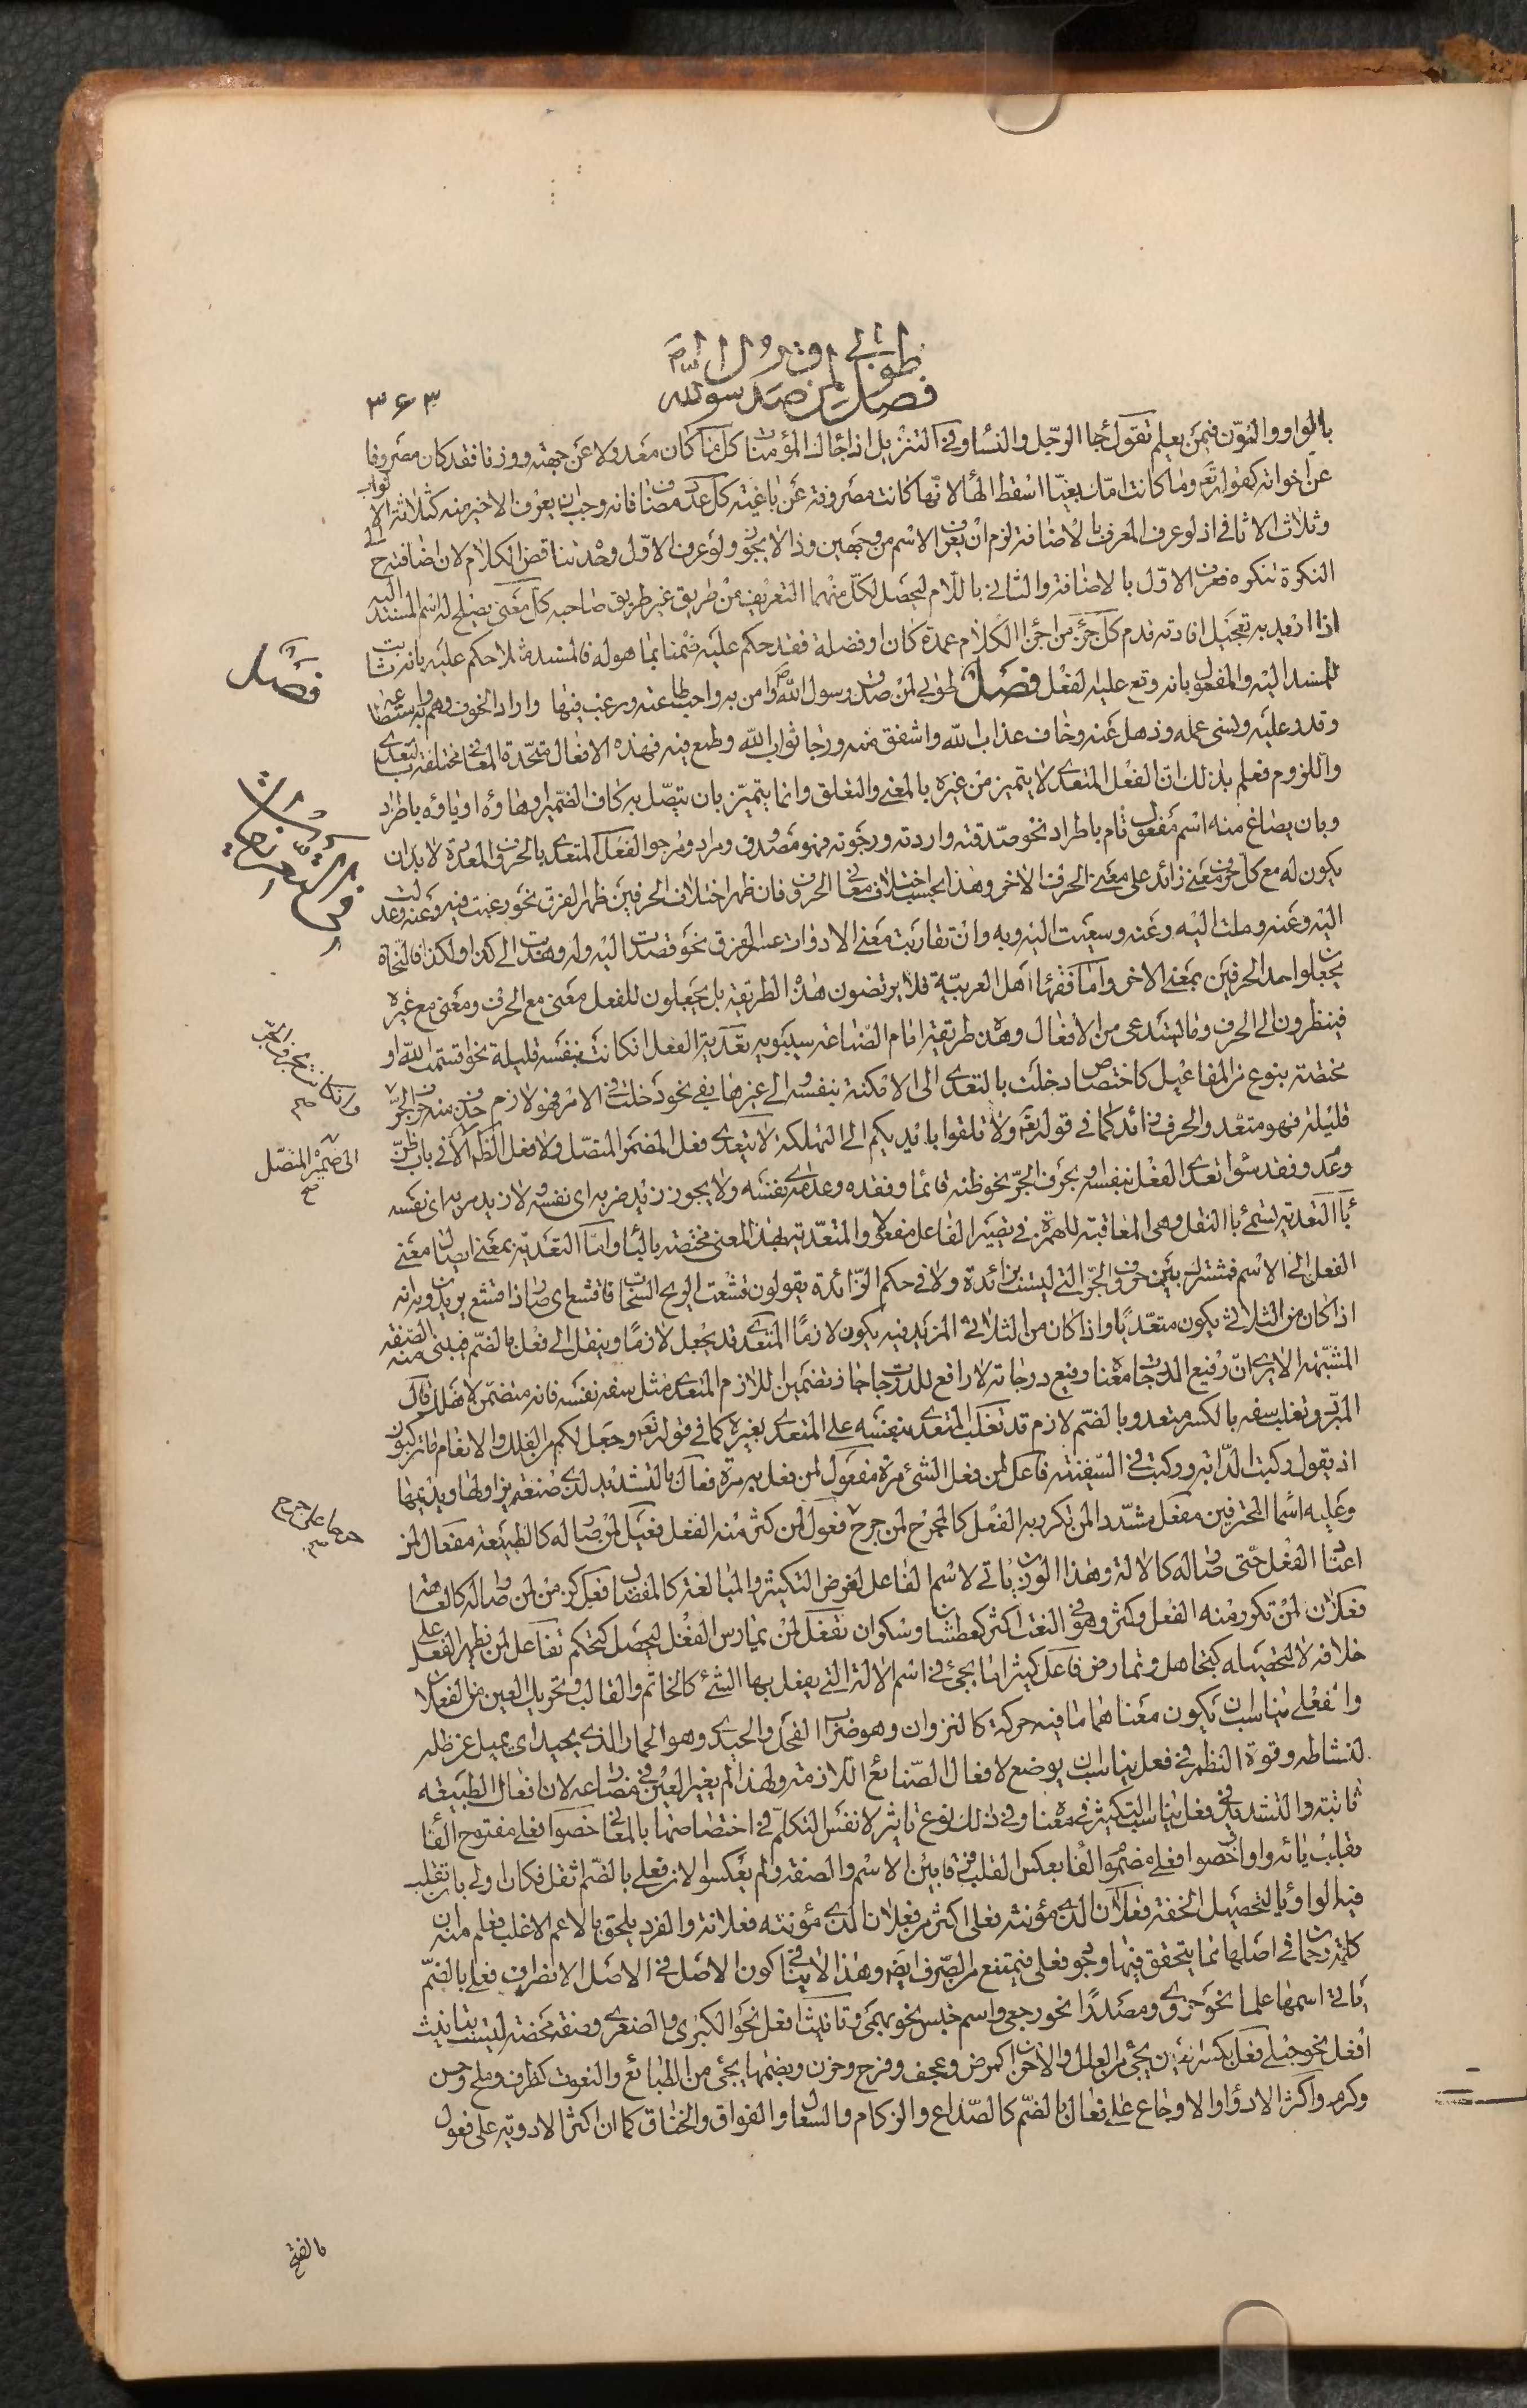 طوبى لمن صدق رسول الله
فصل
٣٦٣
بالواو والنون فيمن يعلم تقول جاء الرجل والنساء وفي التنزيل اذا جاءك المؤمنات كل ما كان معدولا عن جهته ووزنه فقد كان مصروفا
عن اخواته كقوله تعم وما كانت امك بغيا اسقط الهاء لانها كانت مصروفة عن باغية كل عدد مضاف فانه وجب ان يعرف الاخير منه كثلاثة الاثواب
وثلاث الاثافي اذ لو عرف المعرف بالاضافة لزم ان يعرف الاسم من وجهين وذا لا يجوز ولو عرف الاول وحده تناقض الكلام لان اضافته ح الى
النكرة تنكره فعرف الاول بالاضافة والثاني باللام ليحصل لكل منهما التعريف من طريق غير طريق صاحبه كل معنى يصلح له اسم المسند اليه
اذا اريد به تعجيل افادته قدم كل جزء من اجزاء الكلام عمدة كان او فضلة فقد حكم عليه ضمنا بما هو له فالمسند مثلا حكم عليه بانه ثابت
للمسند اليه والمفعول بانه وقع عليه الفعل فصل طوبى لمن صدق رسول الله ص وامن به واحب طاعته ورغب فيها واراد الخير وهم به واستطاعه
وقدر عليه ونسى عمله وذهل عنه وخاف عذاب الله واشفق منه ورجا ثواب الله وطمع فيه فهذه الافعال متحدة المعاني مختلفة بالتعدى
واللزوم فعلم بذلك ان الفعل المتعدى لا يتميز من غيره بالمعنى والتعلق وانما يتميز بان يتصل به كاف الضمير او هاؤه او ياؤه باطراد
وبان يصاغ منه اسم مفعول تام باطراد نحو صدقته واردته ورجوته فهو مصدوق ومراد ومرجو الفعل المتعدى بالحروف المتعددة لا بد ان
يكون له مع كل حرف معنى زائد على معنى الحرف الاخر وهذا بحسب اختلاف معاني الحروف فان ظهر اختلاف الحرفين ظهر الفرق نحو رغبت فيه وعنه وعدلت
اليه وعنه وملت اليه وعنه وسعيت اليه وبه وان تقاربت معنى الادوات عسر الفرق نحو قصدت اليه وله وهديت الى كذا ولكذا فالنحاة
يجعلوا احد الحرفين بمعنى الاخر واما فقهاء اهل العربية فلا يرتضون هذه الطريقة بل يجعلون للفعل معنى مع الحرف ومعنى مع غيره
فينظرون الى الحرف وما يستدعى من الافعال وهذه طريقة امام الصناعة سيبويه تعدية الفعل ان كانت بنفسه قليلة نحو اقسمت الله او
مختصة بنوع من المفاعيل كاختصاص دخلت بالتعدى الى الامكنة بنفسه والى غيرها بفى نحو دخلت في الامر فهو لازم حذف منه حرف الجر
قليلة فهو متعد والحرف زائد كما في قوله تعم ولا تلقوا بايديكم الى التهلكة لا يتعدى فعل المضمر المتصل ولا فعل الظاهر الا في باب ظن
وعدم وفقد سواء تعدى الفعل بنفسه او بحرف الجر نحو ظنه قائما وفقده وعدمه اى نفسه ولا يجوز زيد ضربه اى نفسه ولا زيد مر به اى نفسه
باء التعدية تسمى باء النقل وهى المعاقبة للهمزة في تصيير الفاعل مفعولا والمتعدية بهذا المعنى مختصة بالباء واما التعدية بمعنى ايصال معنى
الفعل الى الاسم فمشترك بين حروف الجر التي ليست بزائدة ولا في حكم الزائدة يقولون قشعت الريح السحاب فاقشع اى صار ذا قشع يريدون به انه
اذا كان من الثلاثي يكون متعديا واذا كان من الثلاثي المزيد فيه يكون لازما المتعدى قد يجعل لازما وينقل الى فعل بالضم فيبنى منه الصفة
المشبهة الا يرى ان رفيع الدرجات معناه رفيع درجاته لا رافع للدرجات اذ تضمين اللازم المتعدى مثل سفه نفسه فانه متضمن لاهلك قال
المبرد وثعلب سفه بالكسر متعد وبالضم لازم قد تغلب المتعدى بنفسه على المتعدى بغيره كما في قوله تعم وجعل لكم من الفلك والانعام ما تركبون
اذ يقول ركبت الدابة وركبت في السفينة فاعل لمن فعل الشئ مرة مفعول لمن فعل به مرة فعال بالتشديد لذى صنعة يزاولها ويديمها
وعليه اسماء المحترفين مفعل مشددا لمن تكرر به الفعل كالمجرح لمن جرح فعول لمن كثر منه الفعل فعيل لمن صار له كالطبيعة مفعال لمن
اعتاد الفعل حتى صار له كالالة وهذا الوزن ياتي لاسم الفاعل لغرض التكثير والمبالغة كالمفضال فعل كزمن لمن صار له كالعاهة
فعلان لمن تكرر منه الفعل وكثر وهو في النعت اكثر كعطشان وسكران تفعل لمن يمارس الفعل ليحصل كتحكم تفاعل لمن يظهر الفعل على
خلافه لا لتحصيله كتجاهل وتمارض فاعل كثيرا ما يجئ في اسم الالة التي يفعل بها الشئ كالخاتم والقالب وتحريك العين من الفعلان
والفعلى يناسب ان يكون معناهما ما فيه حركة كالنزوان وهو ضراب الفحل والحيدى وهو الحمار الذي يحيد اى يميل عن ظله
لنشاطه وقوة النظم في فعل يناسب ان يوضع لافعال الصنائع اللازمة ولهذا لم يغير العين في مضارعه لان افعال الطبيعه
ثابتة والتشديد في فعل يناسب التكثير في معناه وفي ذلك نوع تاثير لانفس التكلم في اختصاصها بالمعاني خصوا فعلى مفتوح الفاء
بقلب يائه واوا وخصوا فعلى مضموم الفاء بعكس القلب فرقا بين الاسم والصفة ولم يعكسوا لان فعلى بالضم اثقل فكان اولى بان تقلب
فيه الواو ياء لتحصيل الخفة فعلان الذى مؤنثه فعلى اكثر من فعلان الذى مؤنثه فعلانة والفرد يلحق بالاعم الاغلب فعلم من ان
كلمة رحمان في اصلها مما يتحقق فيها وجود فعلى فيمتنع من الصرف ايضا وهذا لا ينافى كون الاصل في الاصل الانصراف فعلى بالضم
ياتى اسمها علما نحو حزوى ومصدرا نحو رجعى واسم جنس نحو بهمى وتانيث افعل نحو الكبرى والصغرى وصفة محضة ليست بتانيث
افعل نحو حبلى فعل بكسر العين يجئ من العلل والاحزان كمرض وعجف وفرح وحزن وبضمها يجئ من الطبائع والنعوت كظرف وملح وحسن
وكرم واكثر الادواء والاوجاع على فعال بالضم كالصداع والزكام والسعال والفواق والخناق كما ان اكثر الادوية على فعول
فصل
الى ضمير المتصل
صح
بالفتح